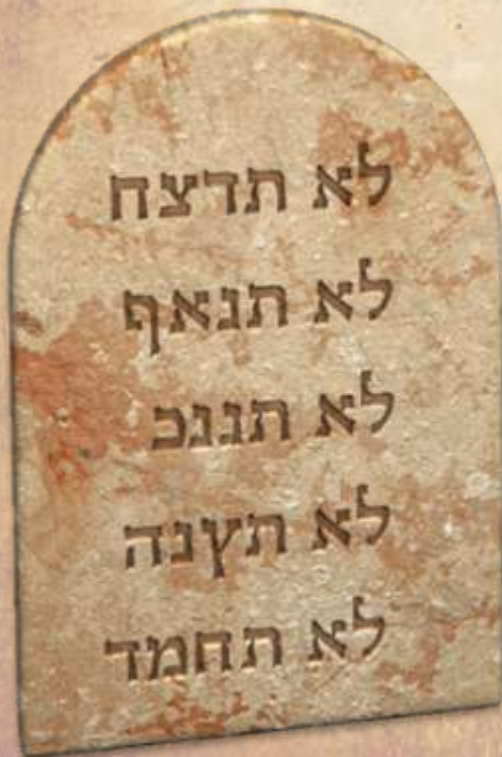 לא תדצח
לא תנאף
לא תגגכ
לא תץנה
לא תחמד